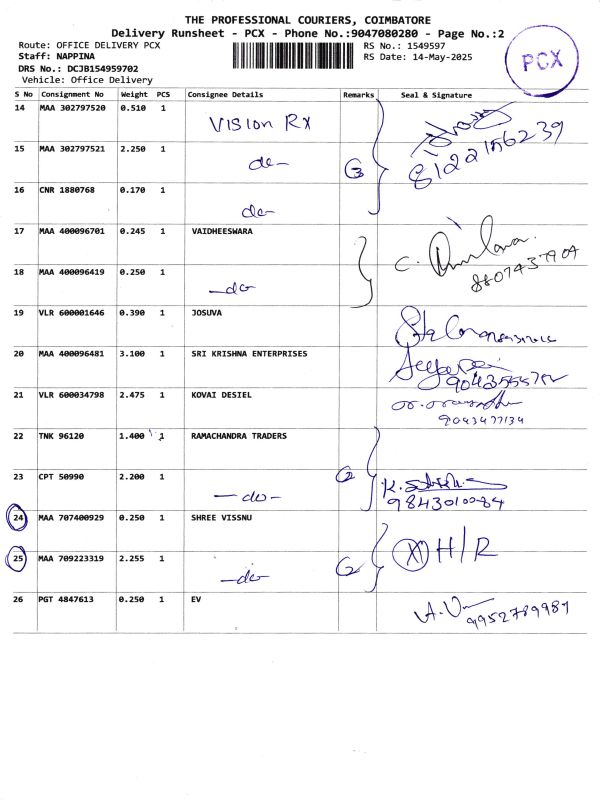 THE PROFESSIONAL COURIERS, COIMBATORE
Delivery Runsheet - PCX - Phone No.:9047080280 - Page No.:2
Route: OFFICE DELIVERY PCX
Staff: NAPPINA
DRS No.: DCJB154959702
Vehicle: Office Delivery
RS No.: 1549597
RS Date: 14-May-2025
PCX
S No Consignment No Weight PCS Consignee Details Remarks Seal & Signature
14 MAA 302797520 0.510 1 VISION RX
15 MAA 302797521 2.250 1 -do- 3 8122156239
16 CNR 1880768 0.170 1 do-
17 MAA 400096701 0.245 1 VAIDHEESWARA
18 MAA 400096419 0.250 1 -do- 8807437904
19 VLR 600001646 0.390 1 JOSUVA
20 MAA 400096481 3.100 1 SRI KRISHNA ENTERPRISES
21 VLR 600034798 2.475 1 KOVAI DESIEL 9043477134
22 TNK 96120 1.400 1 RAMACHANDRA TRADERS
23 CPT 50990 2.200 1 -do- 2 9843010084
24 MAA 707400929 0.250 1 SHREE VISSNU
25 MAA 709223319 2.255 1 -do- 2 H/R
26 PGT 4847613 0.250 1 EV 9952789989